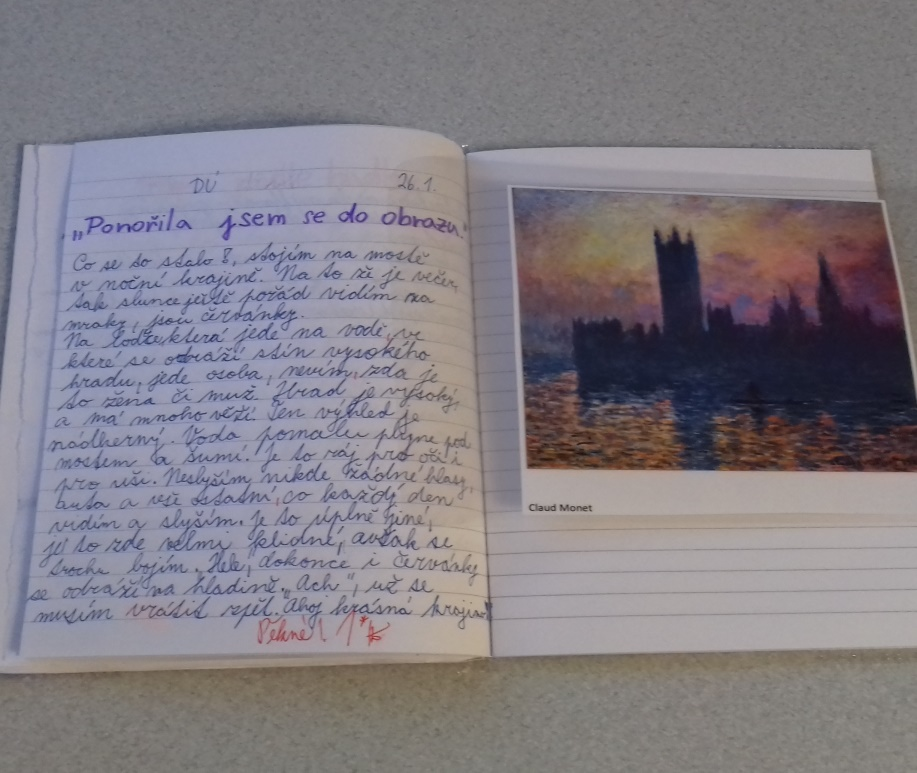 DÚ 26.1.
„Ponořila jsem se do obrazu."
Co se to stalo?, stojím na mostě
v noční krajině. Na to že je večer,
tak slunce ještě pořád vidím na
mraky, jsou červánky.
Na loďce která jede na vodě, ve
které se odráží stín vysokého
hradu, jede osoba, nevím, zda je
to žena či muž. Hrad je vysoký,
a má mnoho věží. Ten výhled je
nádherný. Voda pomalu plyne pod
mostem a šumí. Je to ráj pro oči i
pro uši. Neslyším nikde žádné hlasy,
auta a vše ostatní, co každý den
vidím a slyším. Je to úplně jiné,
je to zde velmi klidné, avšak se
trochu bojím. Hele, dokonce i červánky
se odráží na hladině. „Ach", už se
musím vrátit zpět. Ahoj krásná krajino
Pěkné! 1*
Claud Monet